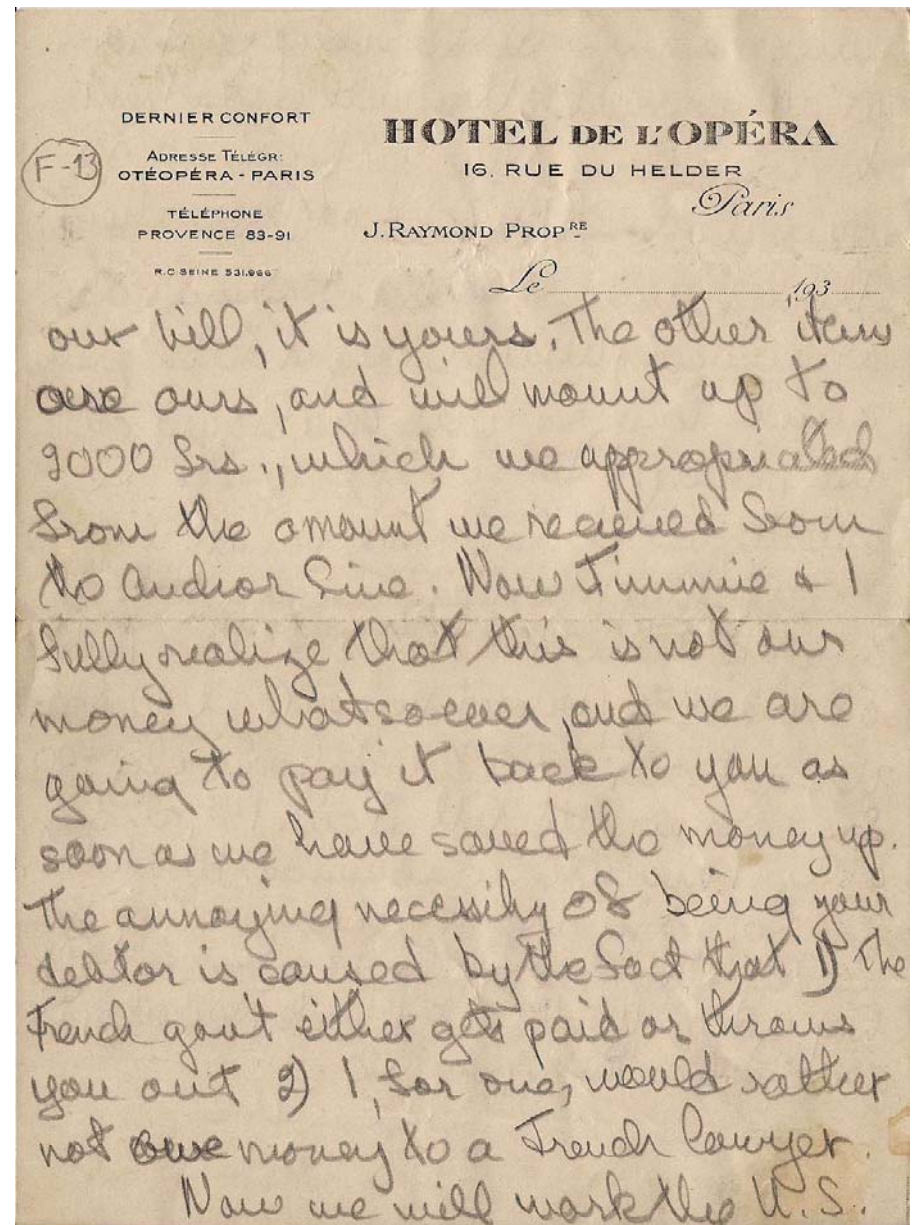 DERNIER CONFORT
ADRESSE TÉLÉGR:
OTÉOPÉRA - PARIS
TÉLÉPHONE
PROVENCE 83-91
R.C. SEINE 531.966
F-13
HOTEL DE L'OPÉRA
16, RUE DU HELDER
Paris
J. RAYMOND PROPRE
Le 193
our bill, it is yours. The other items
are ours, and will mount up to
2000 frs., which we appropriated
from the amount we received from
the Anchor Line. Now Jimmie & I
fully realize that this is not our
money whatsoever, and we are
going to pay it back to you as
soon as we have saved the money up.
The annoying necessity of being your
debtor is caused by the fact that 1) The
French gov't either gets paid or throws
you out 2) I, for one, would rather
not owe money to a French lawyer.
Now we will work the U.S.